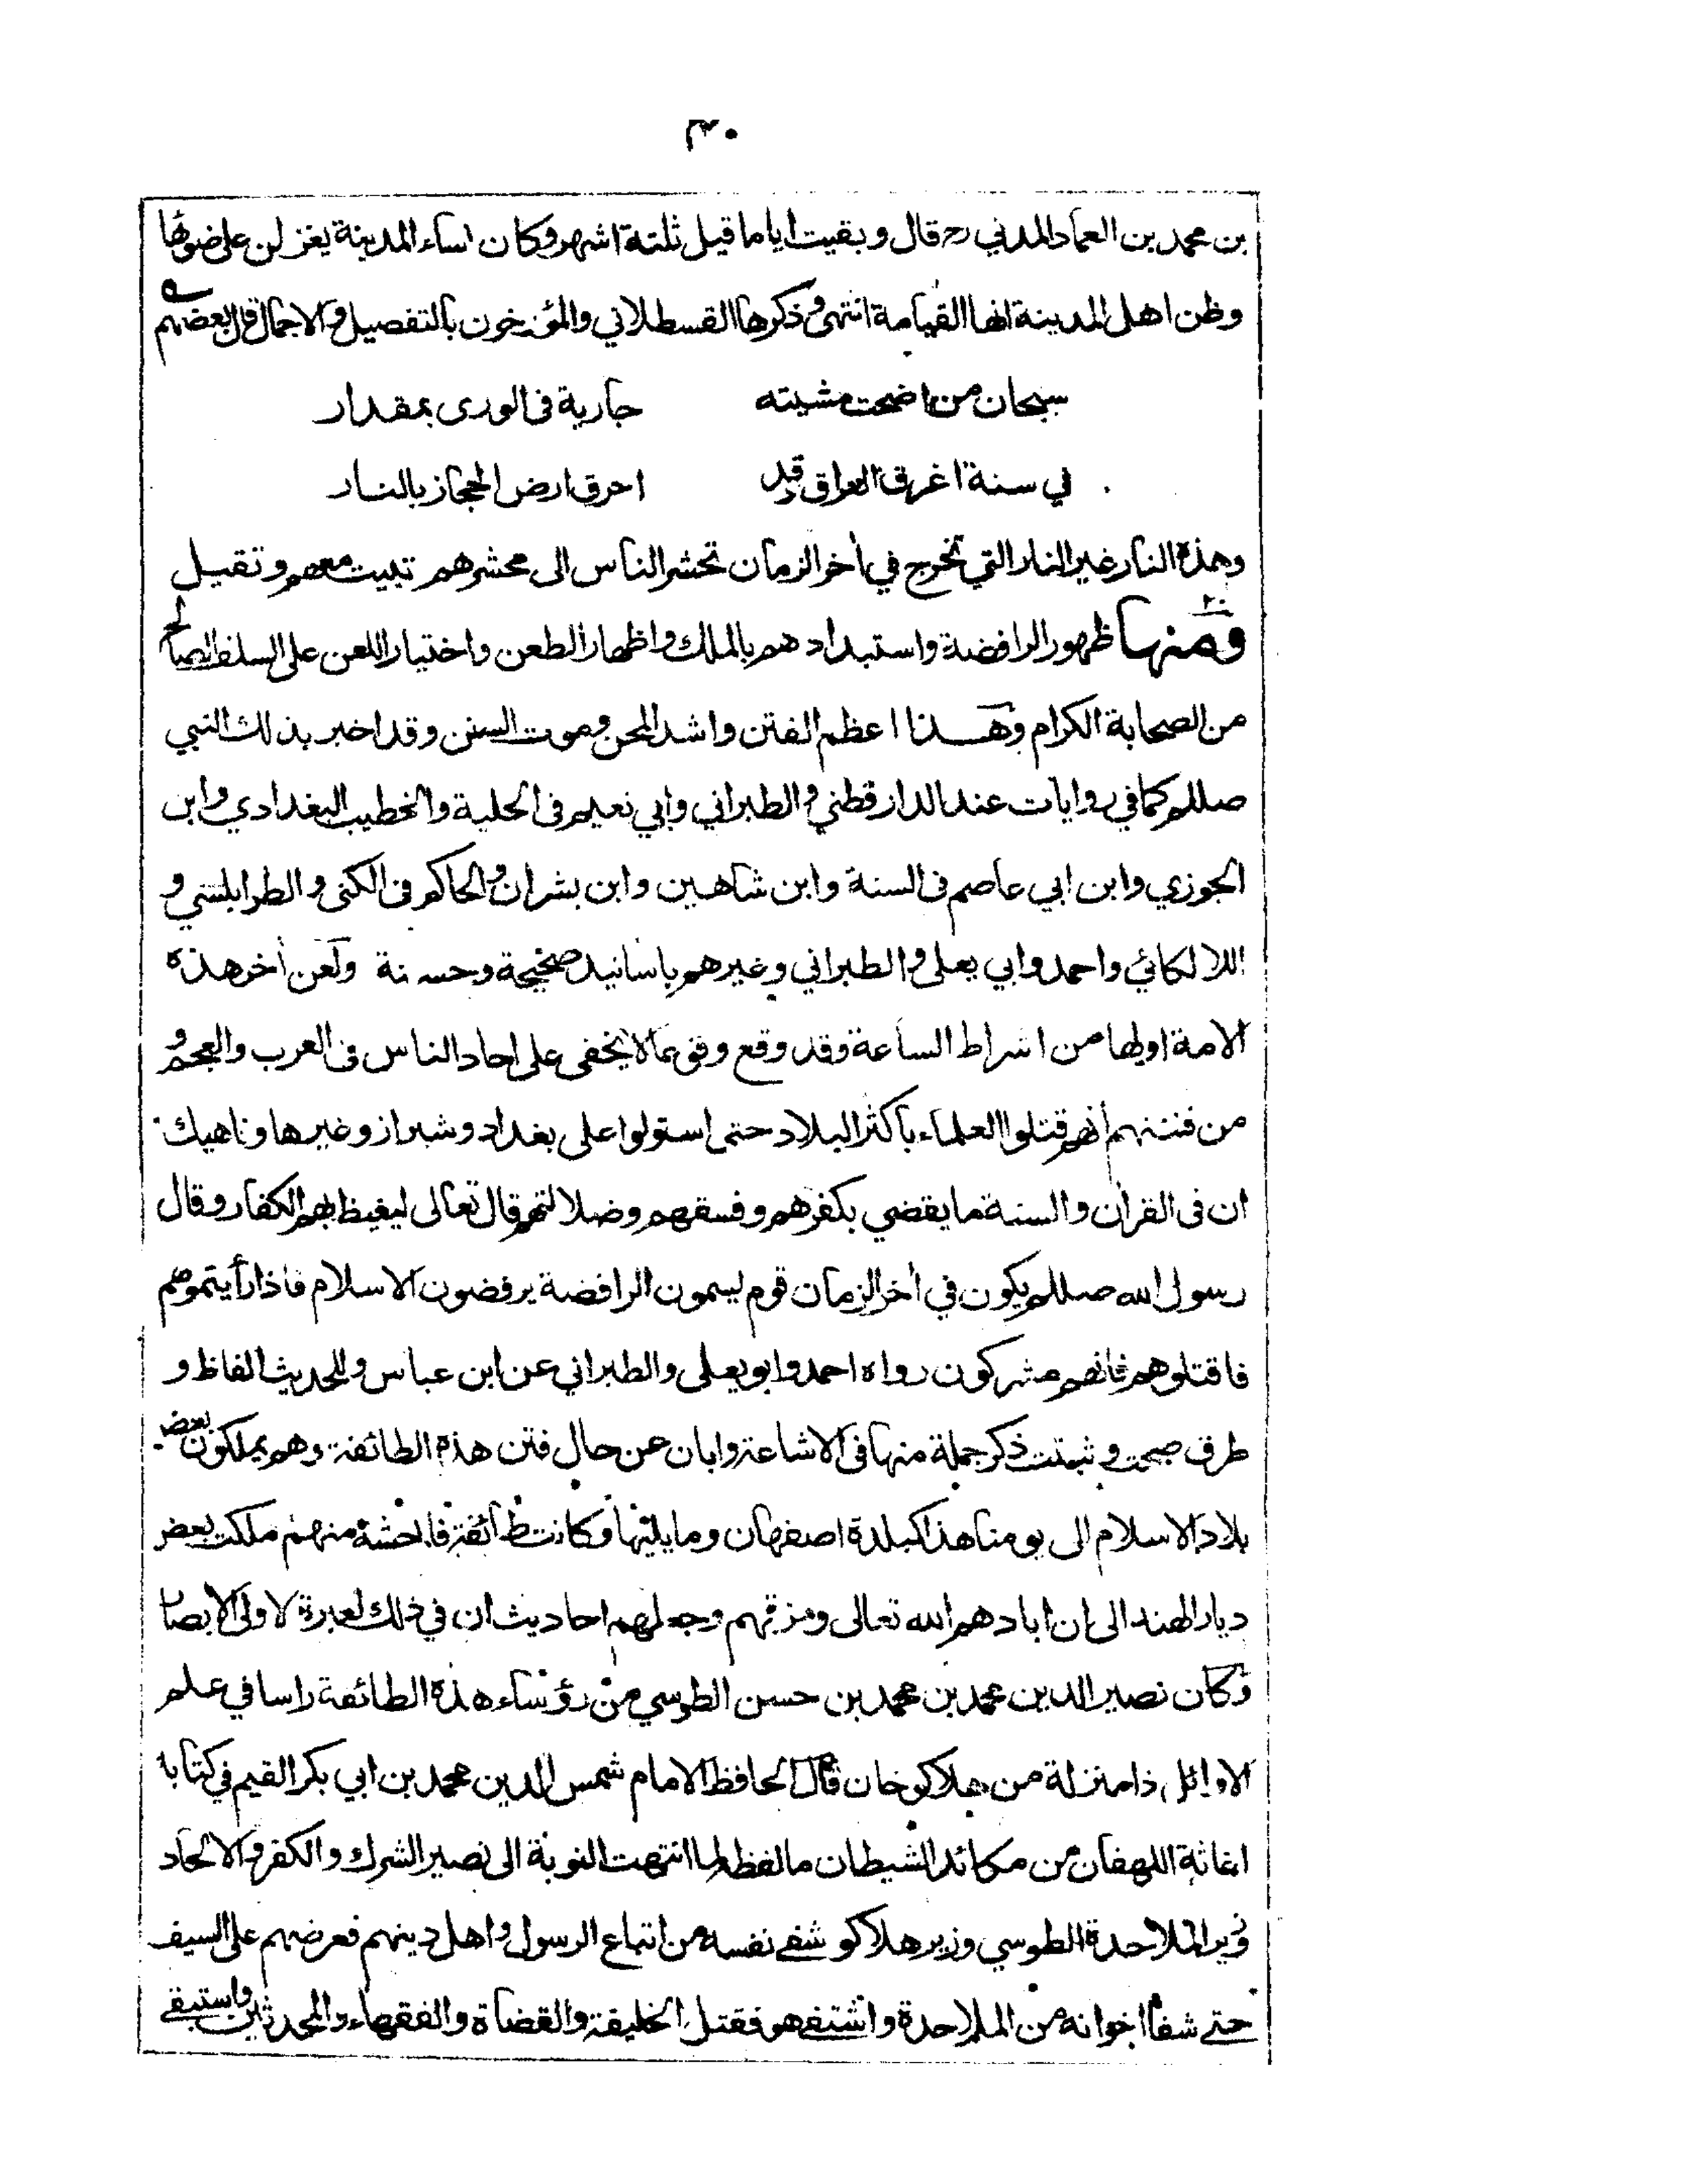 ٣٠
بن محمد بن العماد المدني رح قال وبقيت اياما قيل ثلثة اشهر وكان نساء المدينة يغزلن على ضوئها
وظن اهل المدينة انها القيامة انتهى وذكرها القسطلاني والمؤرخون بالتفصيل والاجمال قال بعضهم
سبحان من اضحت مشيته جارية فى الورى بمقدار
في سنة اغرق العراق وقد احرق ارض الحجاز بالنار
وهذه النار غير النار التي تخرج في أخر الزمان تحشر الناس الى محشرهم تبيت معهم وتقيل
ومنها ظهور الرافضة واستبدادهم بالملك واظهار الطعن واختيار اللعن على السلف الصالح
من الصحابة الكرام وهذا اعظم الفتن واشد المحن وموت السنن وقد اخبر بذلك النبي
صللم كما في روايات عند الدارقطني والطبراني وابي نعيم فى الحلية والخطيب البغدادي وابن
الجوزي وابن ابي عاصم فى السنة وابن شاهين وابن بشران والحاكم فى الكنى والطرابلسي و
اللالكائي واحمد وابي يعلى والطبراني وغيرهم باسانيد صحيحة وحسنة ولعن أخر هذه
الامة اولها من اشراط الساعة وقد وقع وقوعا لا يخفى على احاد الناس فى العرب والعجم و
من فتنهم أنهم قتلوا العلماء بأكثر البلاد حتى استولوا على بغداد وشيراز وغيرها وناهيك
ان فى القرأن والسنة ما يقضي بكفرهم وفسقهم وضلالتهم قال تعالى ليغيظ بهم الكفار وقال
رسول الله صللم يكون في أخر الزمان قوم ليسمون الرافضة يرفضون الاسلام فاذا رأيتموهم
فاقتلوهم فانهم مشركون رواه احمد وابو يعلى والطبراني عن ابن عباس وللحديث الفاظ و
طرق صحت وثبتت ذكر جملة منها فى الاشاعة وابان عن حال فتن هذه الطائفة وهم يملكون بعض
بلاد الاسلام الى يومنا هذا كبلدة اصفهان وما يليها وكانت طائفة فاحشة منهم ملكت بعض
ديار الهند الى ان ابادهم الله تعالى ومزقهم وجعلهم احاديث ان في ذلك لعبرة لاولى الابصار
وكان نصير الدين محمد بن محمد بن حسن الطوسي من رؤساء هذه الطائفة راسا في علم
الاوائل ذا منزلة من هلاكو خان قال الحافظ الامام شمس الدين محمد بن ابي بكر القيم في كتابه
اغاثة اللهفان من مكائد الشيطان ما لفظه لما انتهت النوبة الى نصير الشرك والكفر والالحاد
وزير الملاحدة الطوسي وزير هلاكو شفے نفسه من اتباع الرسول واهل دينهم فعرضهم على السيف
حتے شفا اخوانه من الملاحدة واشتفے هو فقتل الخليفة والقضاة والفقهاء والمحدثين واستبقے